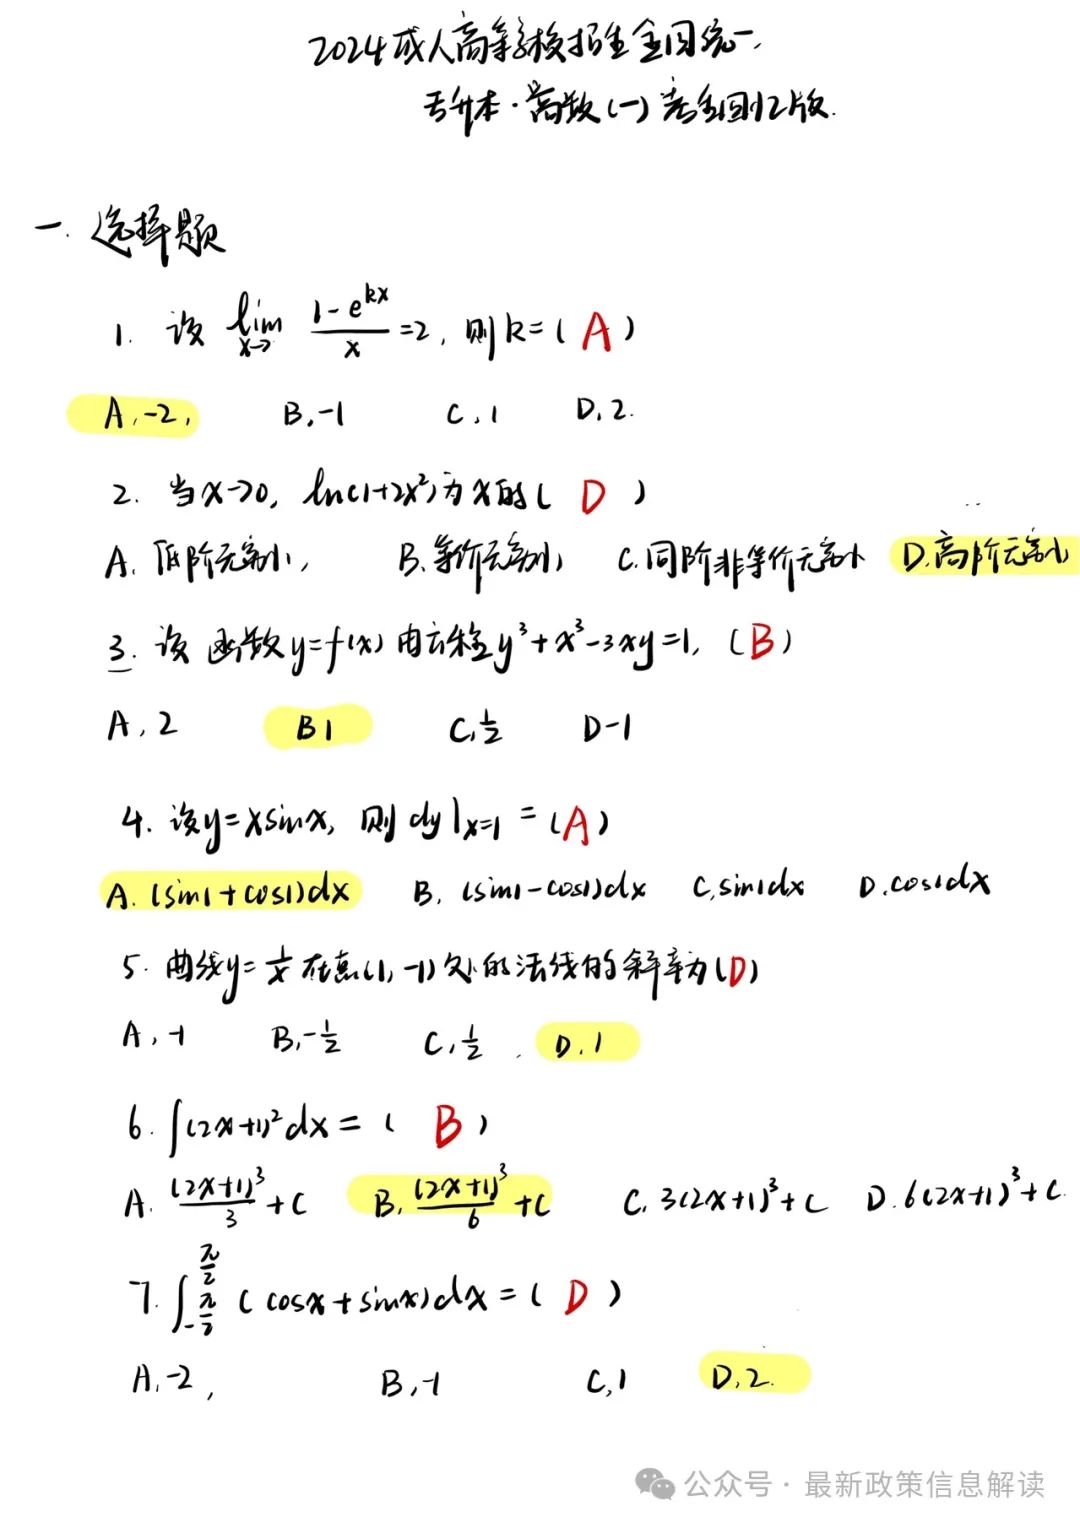 2024成人高等学校招生全国统一
专升本·高数(一)考生回忆版.
一. 选择题
1. 设 lim x→0 (1-e^{kx})/x =2, 则k=( A )
A. -2, B. -1 C. 1 D. 2.
2. 当x→0, ln(1+2x²)为x的( D )
A. 低阶无穷小, B. 等价无穷小, C. 同阶非等价无穷小 D. 高阶无穷小
3. 设 函数y=f(x)由方程y³+x³-3xy=1, (B)
A. 2 B 1 C. 1/2 D -1
4. 设y=xsinx, 则dy|x=1 = (A)
A. (sin1+cos1)dx B. (sin1-cos1)dx C. sin1dx D. cos1dx
5. 曲线y=1/x在点(1, -1)处的法线的斜率为(D)
A. -1 B. -1/2 C. 1/2 D. 1
6. ∫(2x+1)²dx = ( B )
A. (2x+1)³/3 +C B. (2x+1)³/6 +C C. 3(2x+1)³+C D. 6(2x+1)³+C
7. ∫_{-π/2}^{π/2} (cosx+sinx)dx = ( D )
A. -2, B. -1 C. 1 D. 2.
公众号·最新政策信息解读